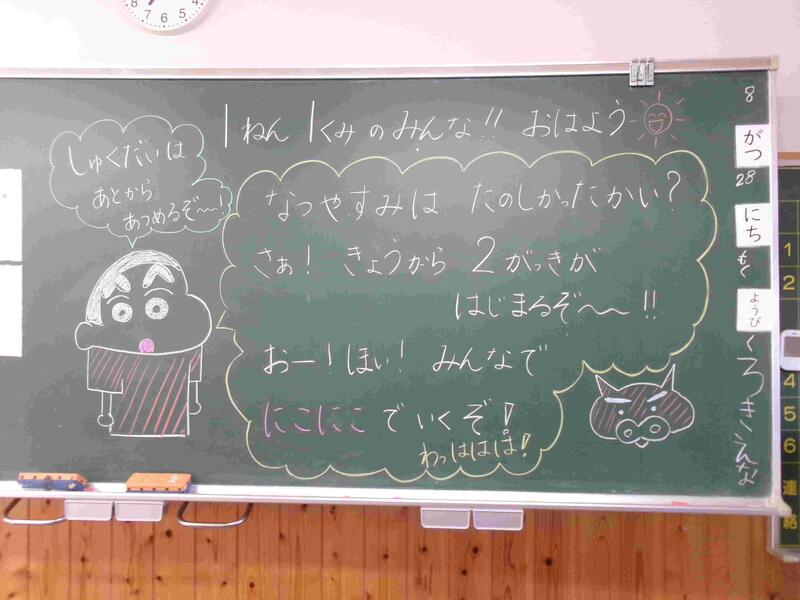 1ねん1くみのみんな!! おはよう
しゅくだいは
あとから
あつめるぞ〜〜!
なつやすみは たのしかったかい?
さぁ! きょうから 2がっきが
はじまるぞ〜〜!!
おー!ほい! みんなで
にこにこ でいくぞ!
わっはははは!
8
がつ
28
にち
もく
ようび
くろき
1
2
4
5
6
連
絡
8
7
6
5
4